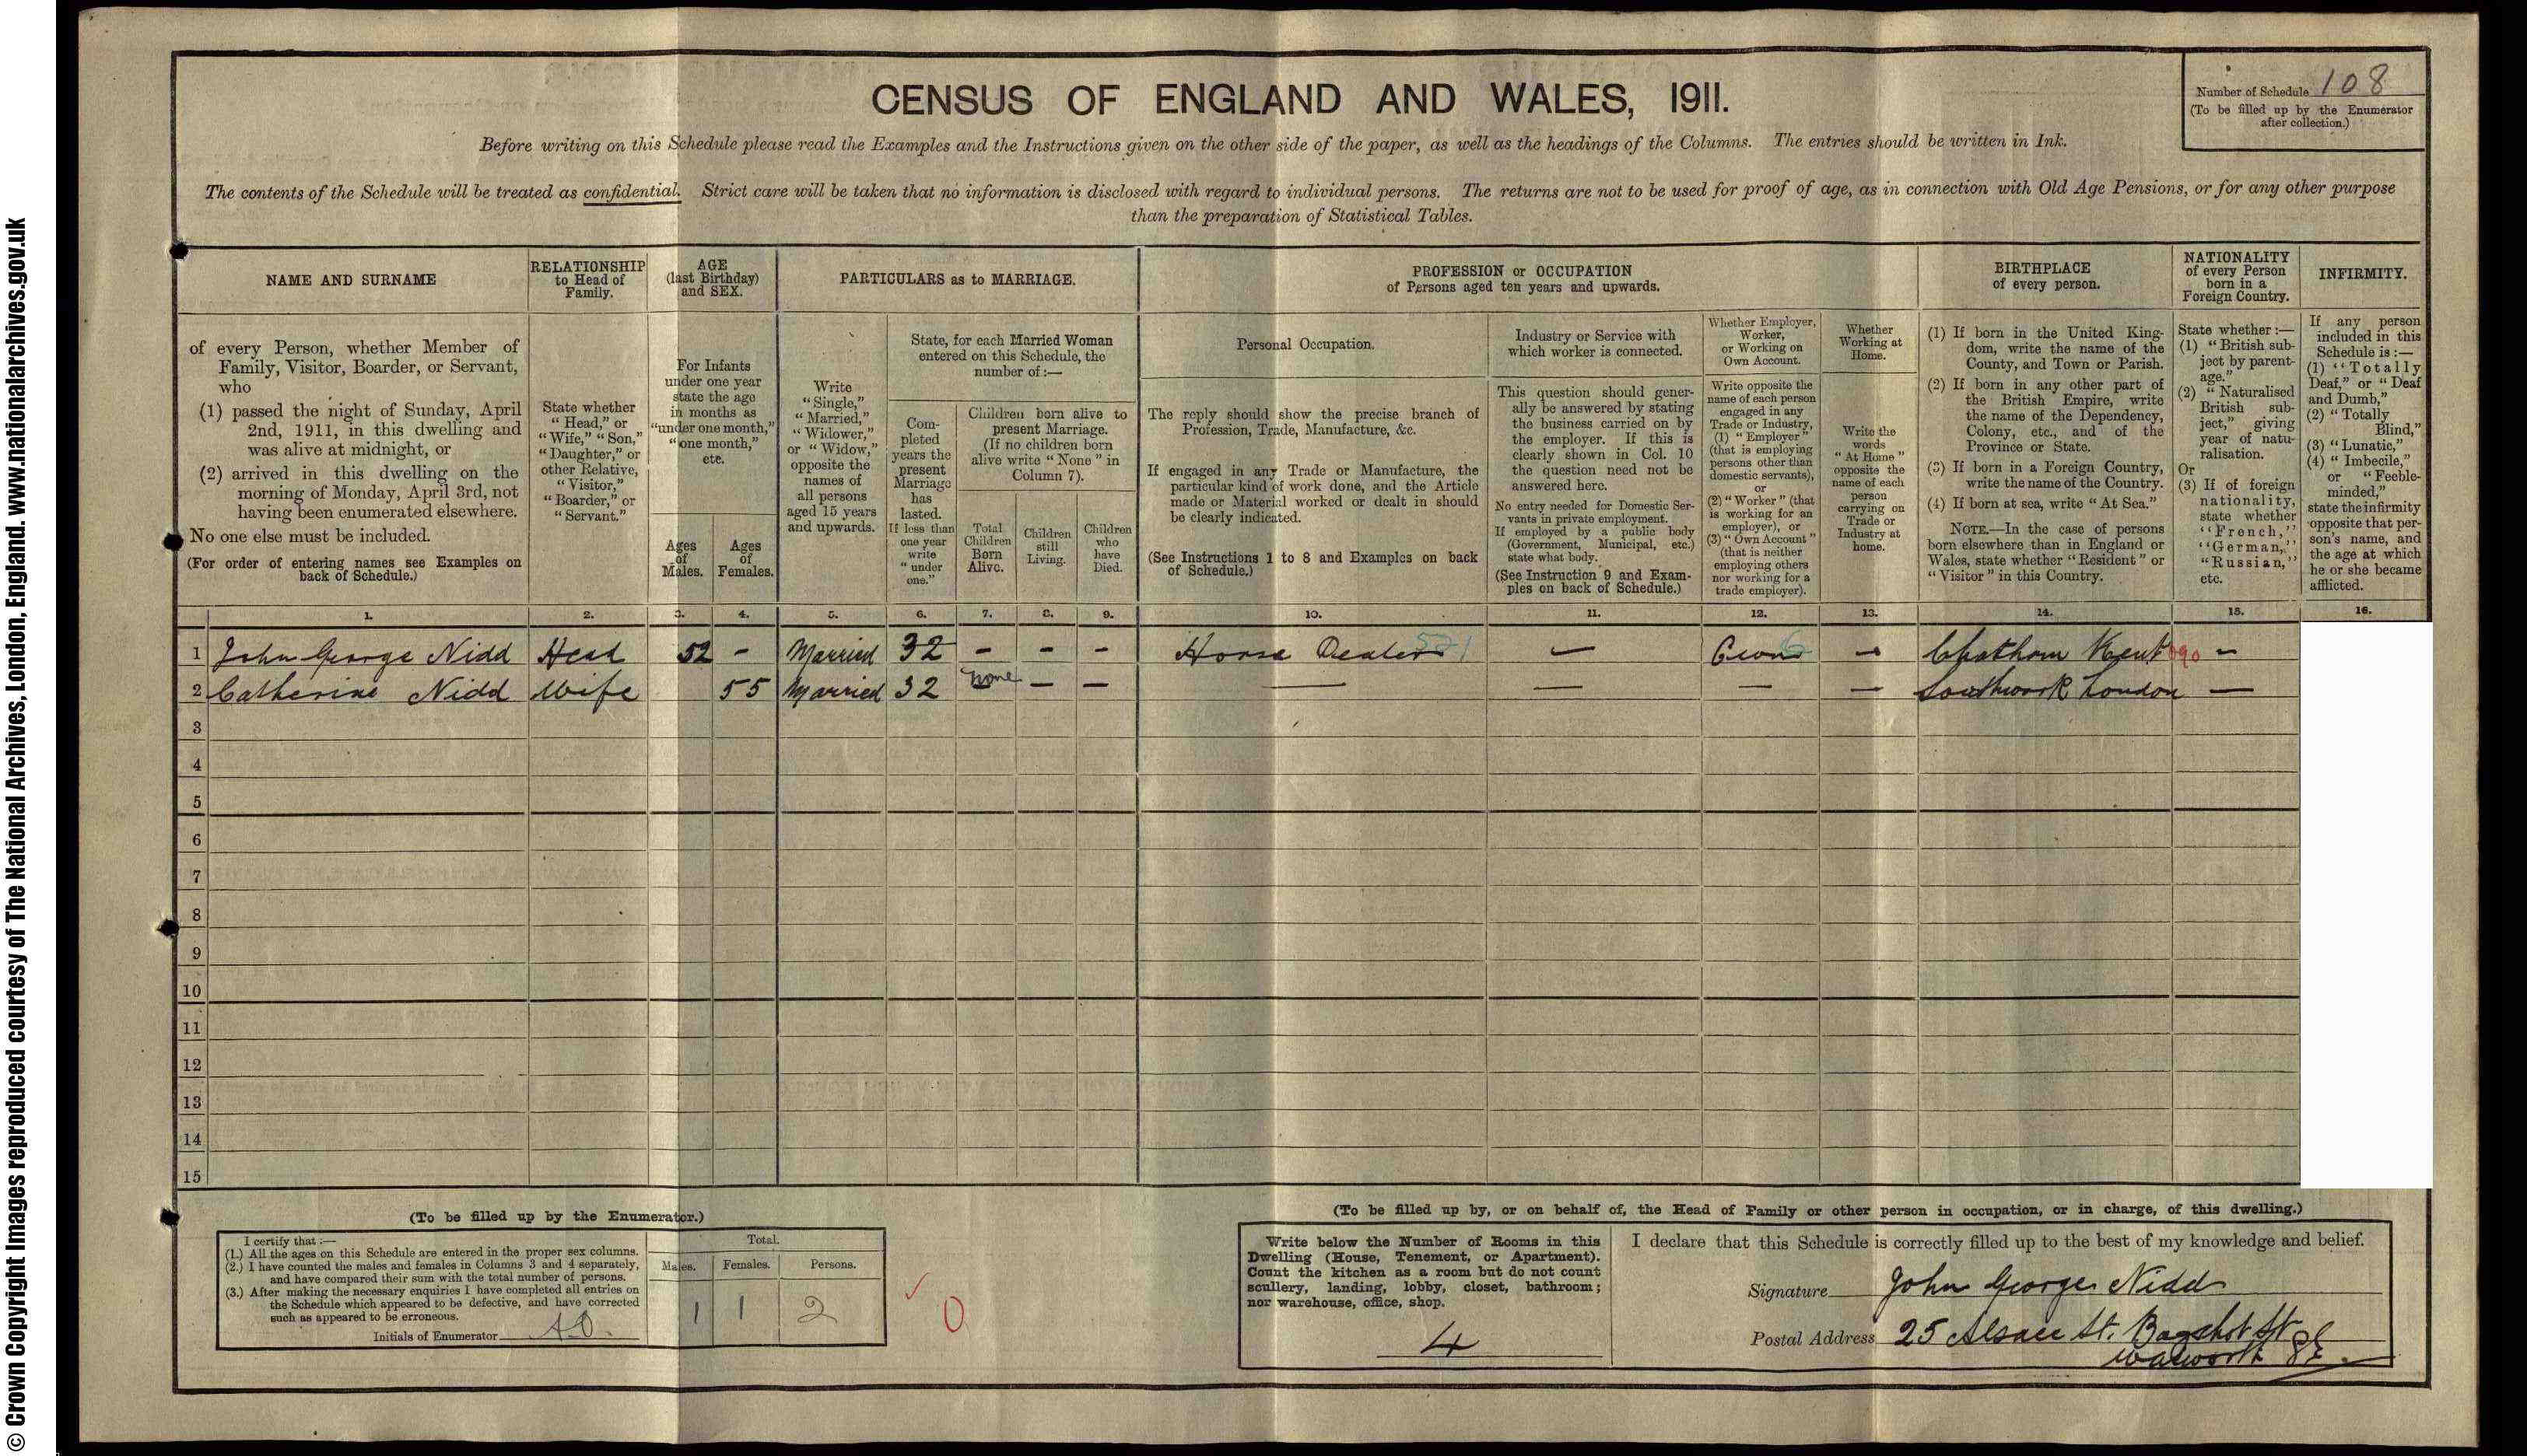 © Crown Copyright Images reproduced courtesy of The National Archives, London, England. www.nationalarchives.gov.uk
CENSUS OF ENGLAND AND WALES, 1911.
Number of Schedule 108
(To be filled up by the Enumerator
after collection.)
Before writing on this Schedule please read the Examples and the Instructions given on the other side of the paper, as well as the headings of the Columns. The entries should be written in Ink.
The contents of the Schedule will be treated as confidential. Strict care will be taken that no information is disclosed with regard to individual persons. The returns are not to be used for proof of age, as in connection with Old Age Pensions, or for any other purpose
than the preparation of Statistical Tables.
NAME AND SURNAME
of every Person, whether Member of
Family, Visitor, Boarder, or Servant,
who
(1) passed the night of Sunday, April
2nd, 1911, in this dwelling and
was alive at midnight, or
(2) arrived in this dwelling on the
morning of Monday, April 3rd, not
having been enumerated elsewhere.
No one else must be included.
(For order of entering names see Examples on
back of Schedule.)
RELATIONSHIP
to Head of
Family.
State whether
"Head," or
"Wife," "Son,"
"Daughter," or
other Relative,
"Visitor,"
"Boarder," or
"Servant."
AGE
(last Birthday)
and SEX.
For Infants
under one year
state the age
in months as
"under one month,"
"one month,"
etc.
Ages
of
Males.
Ages
of
Females.
PARTICULARS as to MARRIAGE.
Write
"Single,"
"Married,"
"Widower,"
or "Widow,"
opposite the
names of
all persons
aged 15 years
and upwards.
State, for each Married Woman
entered on this Schedule, the
number of:—
Com-
pleted
years the
present
Marriage
has
lasted.
If less than
one year
write
"under
one."
Children born alive to
present Marriage.
(If no children born
alive write "None" in
Column 7).
Total
Children
Born
Alive.
Children
still
Living.
Children
who
have
Died.
PROFESSION or OCCUPATION
of Persons aged ten years and upwards.
Personal Occupation.
The reply should show the precise branch of
Profession, Trade, Manufacture, &c.
If engaged in any Trade or Manufacture, the
particular kind of work done, and the Article
made or Material worked or dealt in should
be clearly indicated.
(See Instructions 1 to 8 and Examples on back
of Schedule.)
Industry or Service with
which worker is connected.
This question should gener-
ally be answered by stating
the business carried on by
the employer. If this is
clearly shown in Col. 10
the question need not be
answered here.
No entry needed for Domestic Ser-
vants in private employment.
If employed by a public body
(Government, Municipal, etc.)
state what body.
(See Instruction 9 and Exam-
ples on back of Schedule.)
Whether Employer,
Worker,
or Working on
Own Account.
Write opposite the
name of each person
engaged in any
Trade or Industry,
(1) "Employer"
(that is employing
persons other than
domestic servants),
or
(2) "Worker" (that
is working for an
employer), or
(3) "Own Account"
(that is neither
employing others
nor working for a
trade employer).
Whether
Working at
Home.
Write the
words
"At Home"
opposite the
name of each
person
carrying on
Trade or
Industry at
home.
BIRTHPLACE
of every person.
(1) If born in the United King-
dom, write the name of the
County, and Town or Parish.
(2) If born in any other part of
the British Empire, write
the name of the Dependency,
Colony, etc., and of the
Province or State.
(3) If born in a Foreign Country,
write the name of the Country.
(4) If born at sea, write "At Sea."
NOTE.—In the case of persons
born elsewhere than in England or
Wales, state whether "Resident" or
"Visitor" in this Country.
NATIONALITY
of every Person
born in a
Foreign Country.
State whether:—
(1) "British sub-
ject by parent-
age."
(2) "Naturalised
British sub-
ject," giving
year of natu-
ralisation.
Or
(3) If of foreign
nationality,
state whether
"French,"
"German,"
"Russian,"
etc.
INFIRMITY.
If any person
included in this
Schedule is:—
(1) "Totally
Deaf," or "Deaf
and Dumb,"
(2) "Totally
Blind,"
(3) "Lunatic,"
(4) "Imbecile,"
or "Feeble-
minded,"
state the infirmity
opposite that per-
son's name, and
the age at which
he or she became
afflicted.
1. 2. 3. 4. 5. 6. 7. 8. 9. 10. 11. 12. 13. 14. 15. 16.
1 John George Nidd Head 52 - Married 32 - - - Horse Dealer — Own — Chatham Kent 090 —
2 Catherine Nidd Wife 55 Married 32 None — — — — — — Southwark London —
3
4
5
6
7
8
9
10
11
12
13
14
15
(To be filled up by the Enumerator.)
I certify that:—
(1.) All the ages on this Schedule are entered in the proper sex columns.
(2.) I have counted the males and females in Columns 3 and 4 separately,
and have compared their sum with the total number of persons.
(3.) After making the necessary enquiries I have completed all entries on
the Schedule which appeared to be defective, and have corrected
such as appeared to be erroneous.
Initials of Enumerator
Total.
Males. Females. Persons.
1 1 2
0
(To be filled up by, or on behalf of, the Head of Family or other person in occupation, or in charge, of this dwelling.)
Write below the Number of Rooms in this
Dwelling (House, Tenement, or Apartment).
Count the kitchen as a room but do not count
scullery, landing, lobby, closet, bathroom;
nor warehouse, office, shop.
4
I declare that this Schedule is correctly filled up to the best of my knowledge and belief.
Signature John George Nidd
Postal Address 25 Alsace St. Bagshot St
Walworth SE